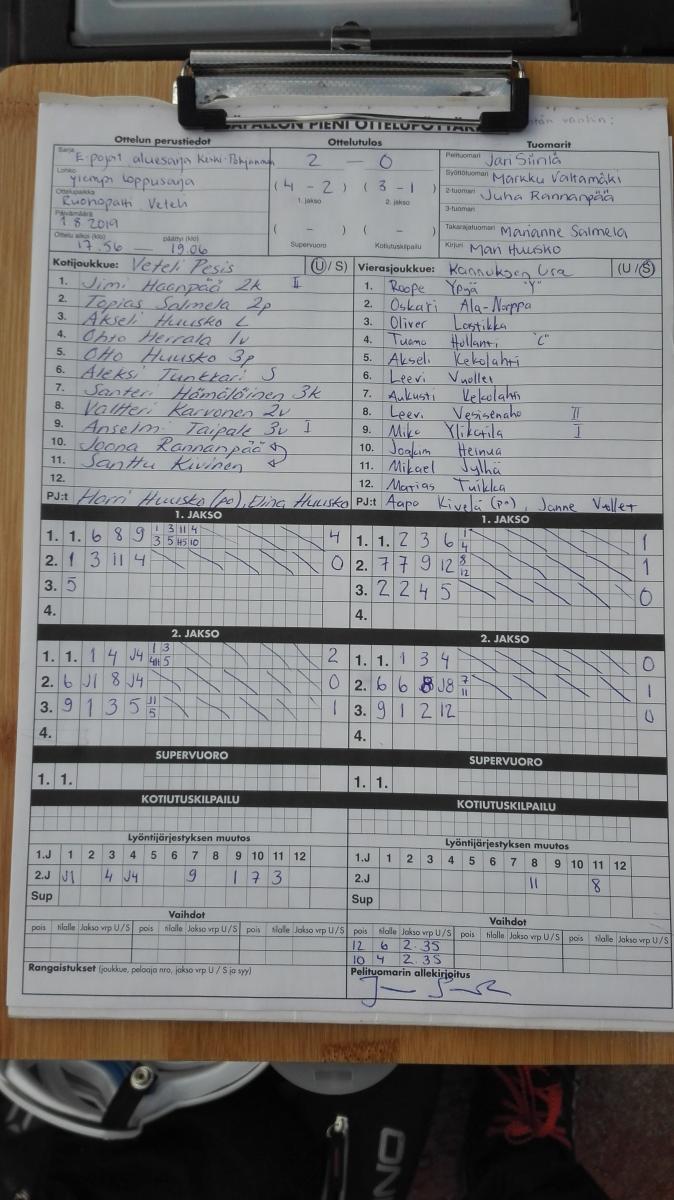 PIENI OTTELUPÖYTÄKIRJA
Ottelun perustiedot
Ottelutulos
Tuomarit
Sarja E-pojat aluesarja Keski-Pohjanmaa
Lohko ylempi loppusarja
Ottelupaikka Ruohopatti Veteli
Päivämäärä 1 8 2019
Ottelu alkoi (klo) 17.56 — päättyi (klo) 19.06
2 — 0
(4 - 2) (3 - 1)
1. jakso 2. jakso
( - ) ( - )
Supervuoro Kotiutuskilpailu
Pelituomari Jari Siirilä
Syöttötuomari Markku Valtamäki
2-tuomari Juha Rannanpää
3-tuomari
Takarajatuomari Marianne Salmela
Kirjuri Mari Huusko
Kotijoukkue: Veteli Pesis (U/S)
1. Jimi Haanpää 2k II
2. Topias Salmela 2p
3. Akseli Huusko L
4. Ohto Herrala 1v
5. Otto Huusko 3p
6. Aleksi Tunkkari S
7. Santeri Hämäläinen 3k
8. Valtteri Karvonen 2v
9. Anselmi Taipale 3v I
10. Joona Rannanpää
11. Santtu Kivinen
12.
PJ:t Harri Huusko (po), Elina Huusko
Vierasjoukkue: Kannuksen Ura (U/S)
1. Roope Ypyä "Y"
2. Oskari Ala-Norppa
3. Oliver Lastikka
4. Tuomo Hollanti "C"
5. Akseli Kekolahti
6. Leevi Vuollet
7. Aukusti Kekolahti
8. Leevi Vesisenaho II
9. Miko Ylikotila I
10. Joakim Heinua
11. Mikael Jylhä
12. Matias Tuikka
PJ:t Aapo Kivelä (po), Janne Vuollet
1. JAKSO
1. 1. 6 8 9 1 3 11 4 4
3 5 H5 10
2. 1 3 11 4 0
3. 5
4.
1. JAKSO
1. 1. 2 3 6 1 1
4
2. 7 7 9 12 8 1
12
3. 2 2 4 5 0
4.
2. JAKSO
1. 1. 1 4 J4 1 3 2
4H 5
2. 6 J1 8 J4 0
3. 9 1 3 5 J1 1
5
4.
2. JAKSO
1. 1. 1 3 4 0
2. 6 6 8 J8 7 1
11
3. 9 1 2 12 0
4.
SUPERVUORO
1. 1.
SUPERVUORO
1. 1.
KOTIUTUSKILPAILU
KOTIUTUSKILPAILU
Lyöntijärjestyksen muutos
1.J 1 2 3 4 5 6 7 8 9 10 11 12
2.J J1 4 J4 9 1 7 3
Sup
Lyöntijärjestyksen muutos
1.J 1 2 3 4 5 6 7 8 9 10 11 12
2.J 11 8
Sup
Vaihdot
pois tilalle Jakso vrp U/S pois tilalle Jakso vrp U/S pois tilalle Jakso vrp U/S
Vaihdot
pois tilalle Jakso vrp U/S pois tilalle Jakso vrp U/S pois tilalle Jakso vrp U/S
12 6 2.3S
10 4 2.3S
Rangaistukset (joukkue, pelaaja nro, jakso vrp U / S ja syy)
Pelituomarin allekirjoitus